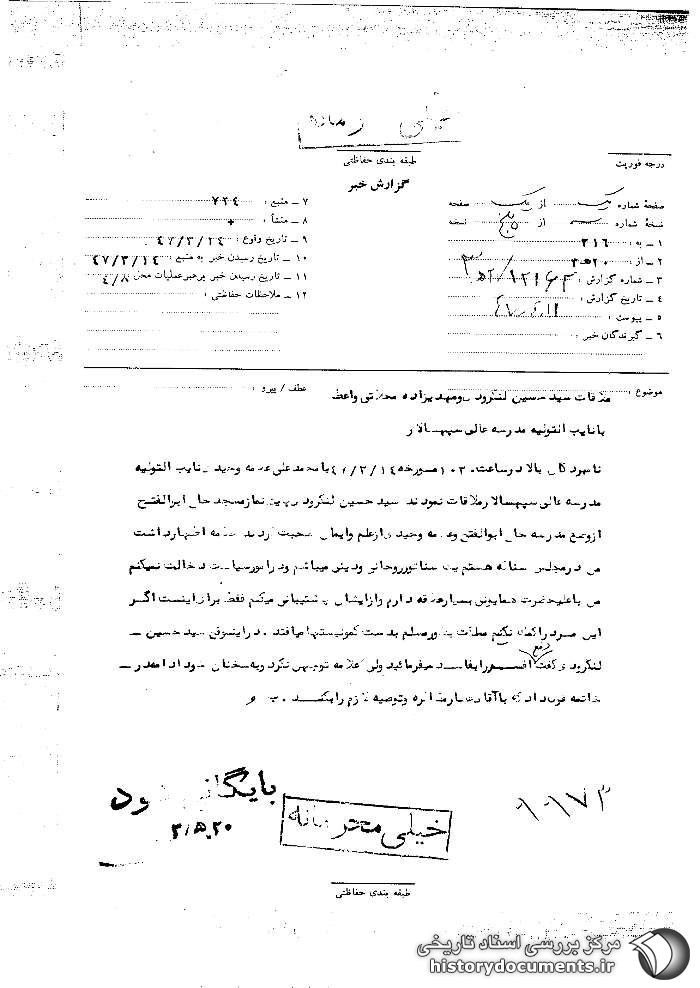 خیلی محرمانه
طبقه بندی حفاظتی
درجه فوریت
گزارش خبر
صفحهٔ شماره یک از یک صفحه
نسخهٔ شماره سه از پنج نسخه
۱ ـ به : ۳۱۶
۲ ـ از : ۲۰ﻫ۳
۳ ـ شماره گزارش :
۴ ـ تاریخ گزارش :
۵ ـ پیوست :
۶ ـ گیرندگان خبر :
۷ ـ منبع : ۷۲۴
۸ ـ منشأ : +
۹ ـ تاریخ وقوع : ۴۷/۳/۱۴
۱۰ ـ تاریخ رسیدن خبر به منبع : ۴۷/۳/۱۴
۱۱ ـ تاریخ رسیدن خبر برهبر عملیات محل ۴/۸
۱۲ ـ ملاحظات حفاظتی :
موضوع : ملاقات سید حسین لنکرودی ومهدیزاده محلاتی واعظ
عطف / پیرو :
بانایب التولیه مدرسه عالی سپهسالار
نامبردگان بالا درساعت مورخه ۴۷/۳/۱۴ بامحمدعلی علامه وحیدی نایب التولیه
مدرسه عالی سپهسالار ملاقات نمودند سید حسین لنکرودی پیش نماز مسجد حاج ابوالفتح
ازوضع مدرسه حاج ابوالفتح وعلامه وحیدی ازعلم وایمان صحبت کردند علامه اظهارداشت
من درمجلس سنا که هستم یک سناتور روحانی ودینی میباشم ودرامورسیاست دخالت نمیکنم
من باعلیحضرت همایونی بسیارعلاقه دارم وازایشان پشتیبانی میکنم فقط برای اینست اگر
این مرد راکمک نکنم مملکت بطورمسلم بدست کمونیستها میافتد . دراینموقع سید حسین ـ
لنکرودی گفت دفع افسد رابفاسد میفرمائید ولی علامه توجهی نکرد وبه سخنان خود ادامه‌داد ـ
خاتمه قول داد که باآقای مذاکره وتوصیه لازم رابکند .
بایگانی شود
۲۰ﻫ/۳
خیلی محرمانه
طبقه بندی حفاظتی
مرکز بررسی اسناد تاریخی
historydocuments.ir